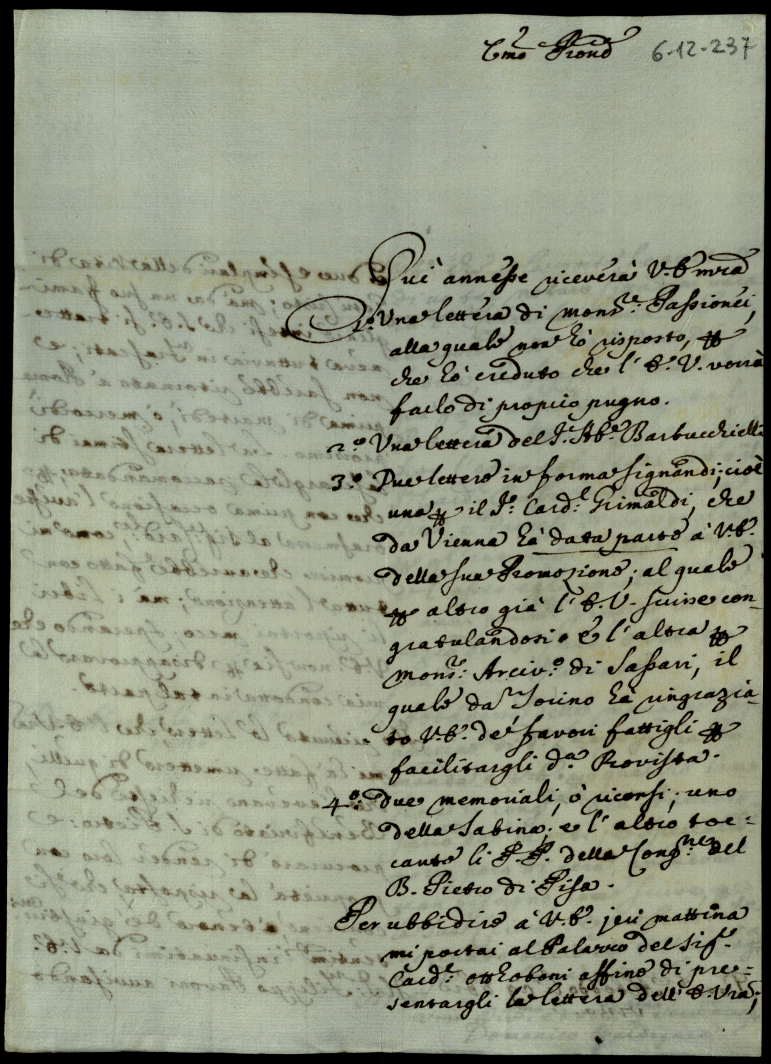 Emo Prone 6-12-237
Qui annesse riceverà V. Emza
1º. Una lettera di monsre. Passionei,
alla quale non hò risposto,
che hò creduto che l'E. V. vorrà
farlo di proprio pugno.
2º. Una lettera del Sr. Abe. Barbucchielli
3º. Due lettere in forma signandi; cioè
una il Sr. Cardl. Grimaldi, che
da Vienna hà data parte à V. E.
della sua Promozione; al quale
altro già l'E. V. scrisse con-
gratulandosi e l'altra
monsr. Arcivo. di Sassari, il
quale da Torino hà ringrazia-
to V. E. de' favori fattigli
facilitargli da. Provista.
4º: due memoriali, ò ricorsi; uno
della Sabina; e l'altro toc-
cante li P. P. della Congne. del
B. Pietro di Pisa.
Per ubbidire à V. E. jeri mattina
mi portai al Palazzo del Sigr.
Cardl. Otthoboni affine di pre-
sentargli la lettera dell'E. Vra;